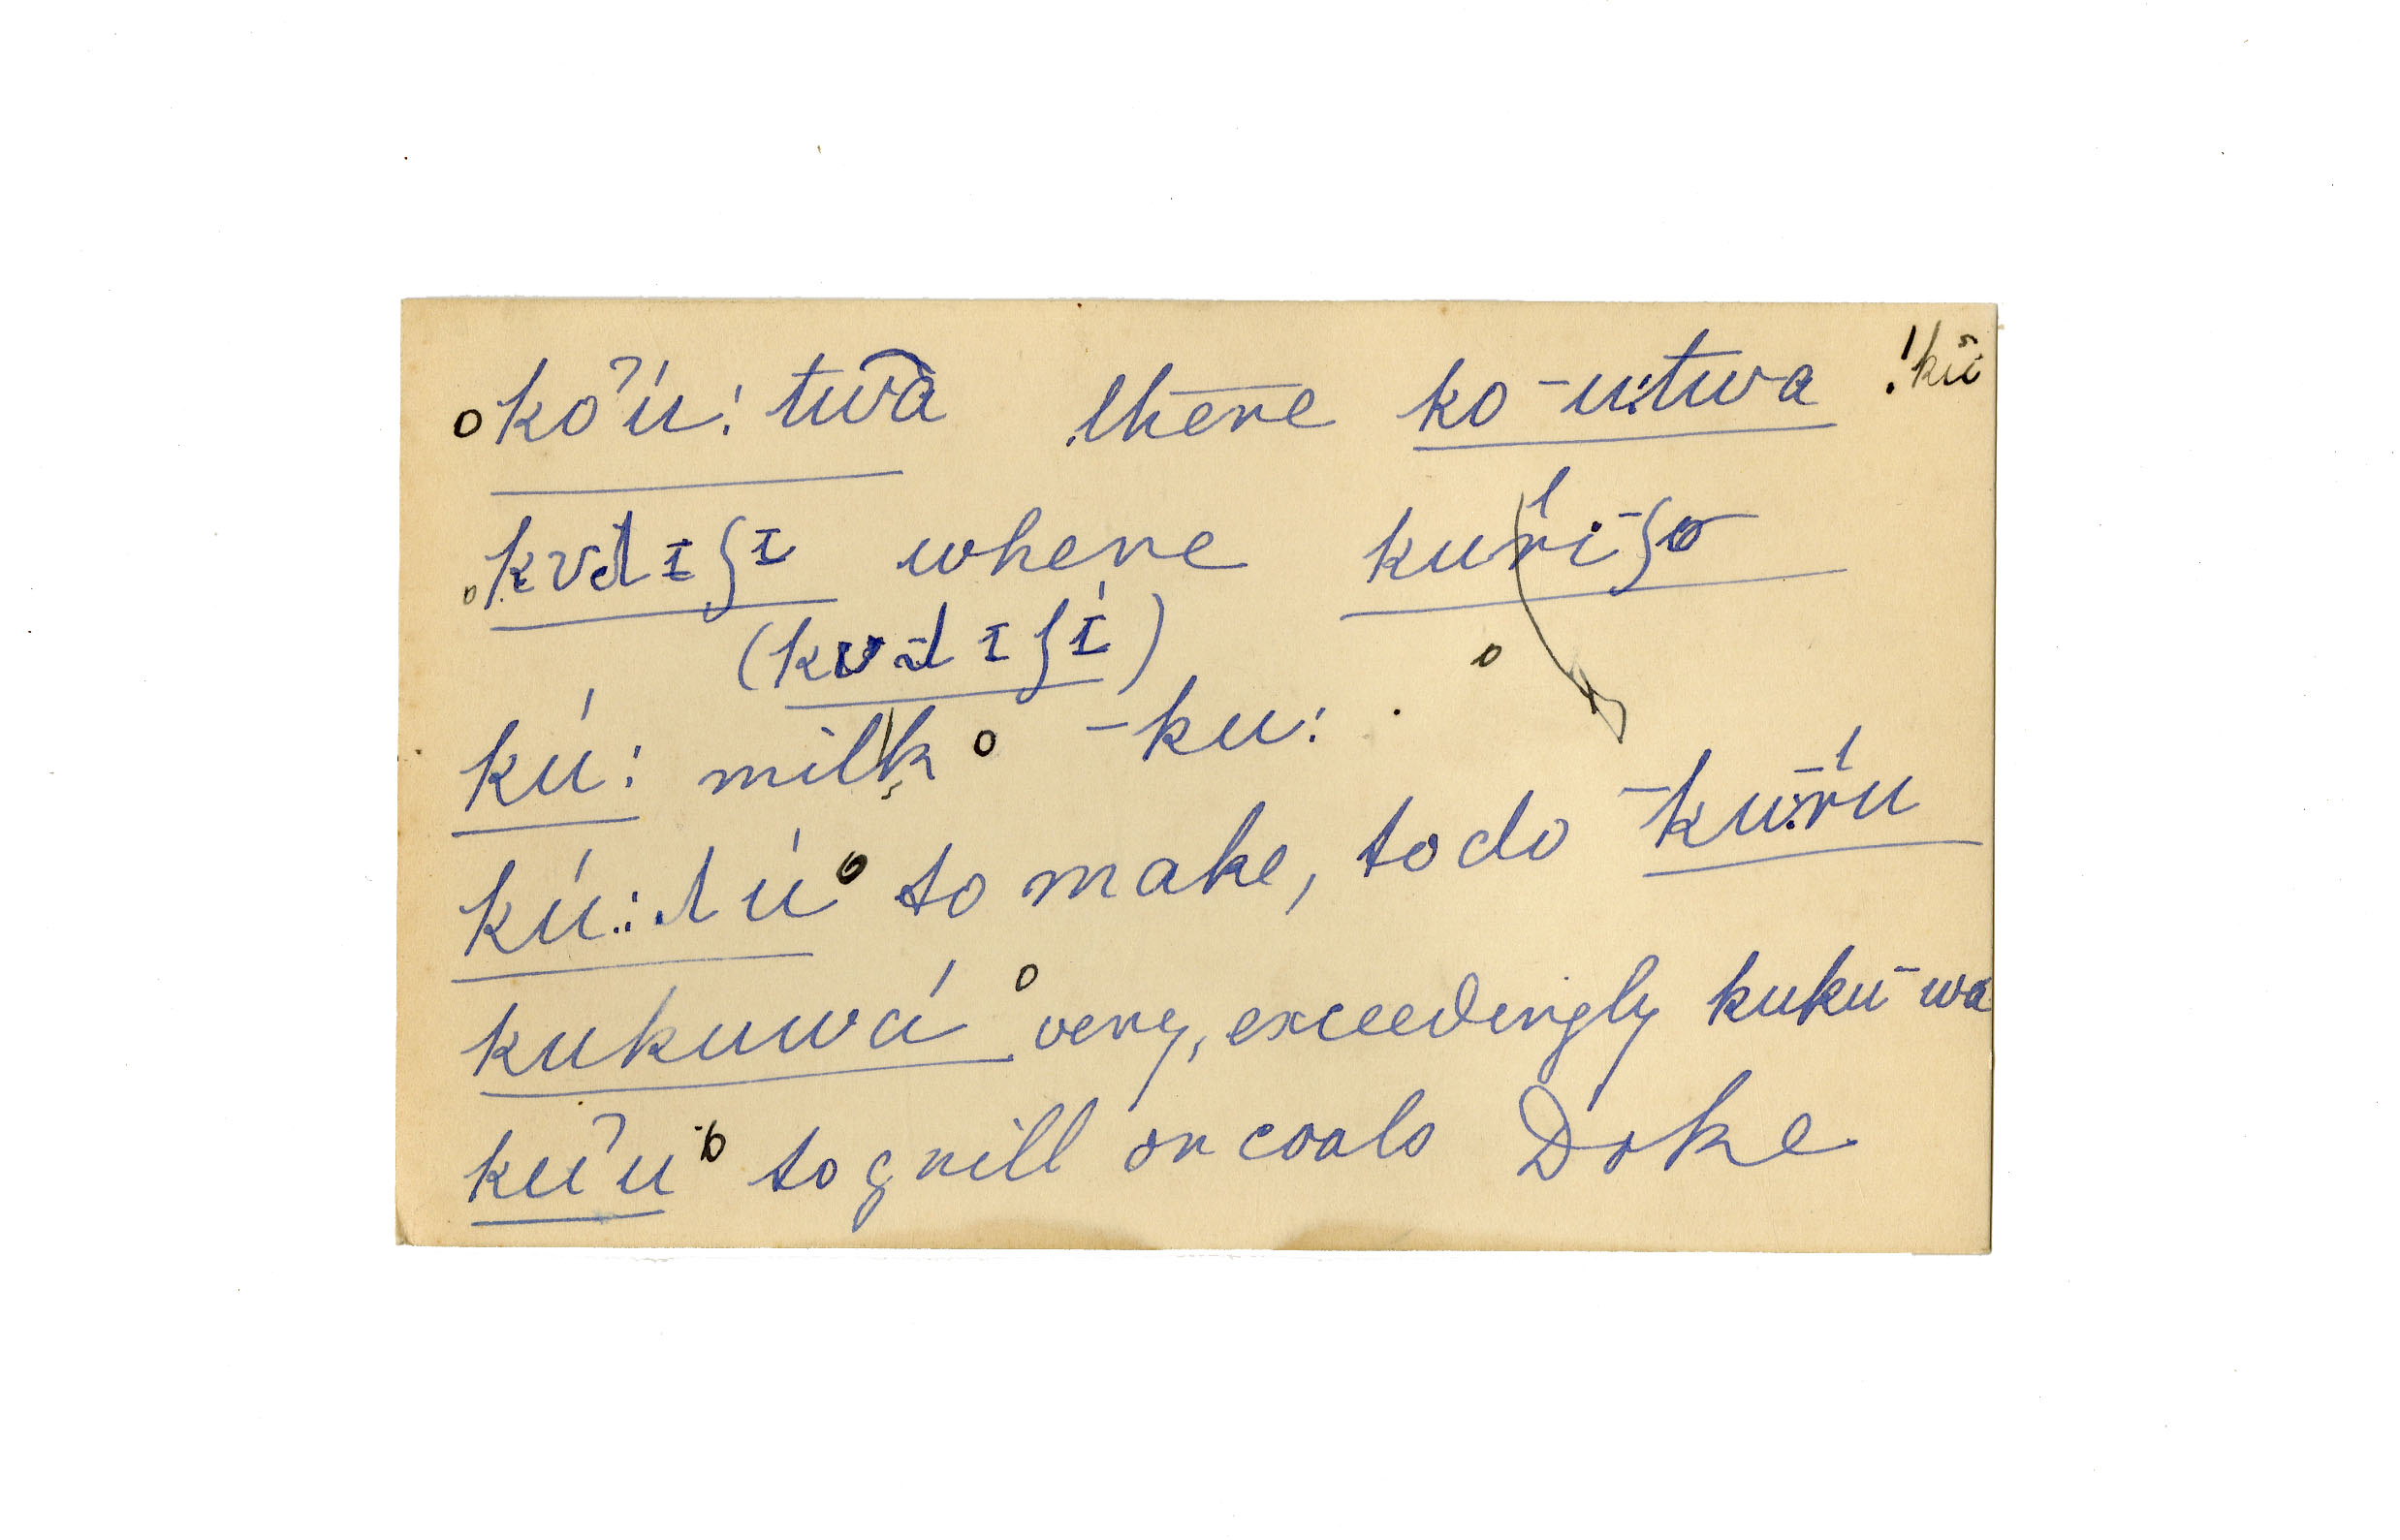 koˀú: twa there ko-u:twa !kű
kʋɺɪʃɪ where kuriʃo
(kʋɺɪʃɪ́)
kú: milk -ku:
kú:ɺú to make, to do -ku:ru
kukuwá very, exceedingly kukū-wa
kuˀu to grill on coals Doke